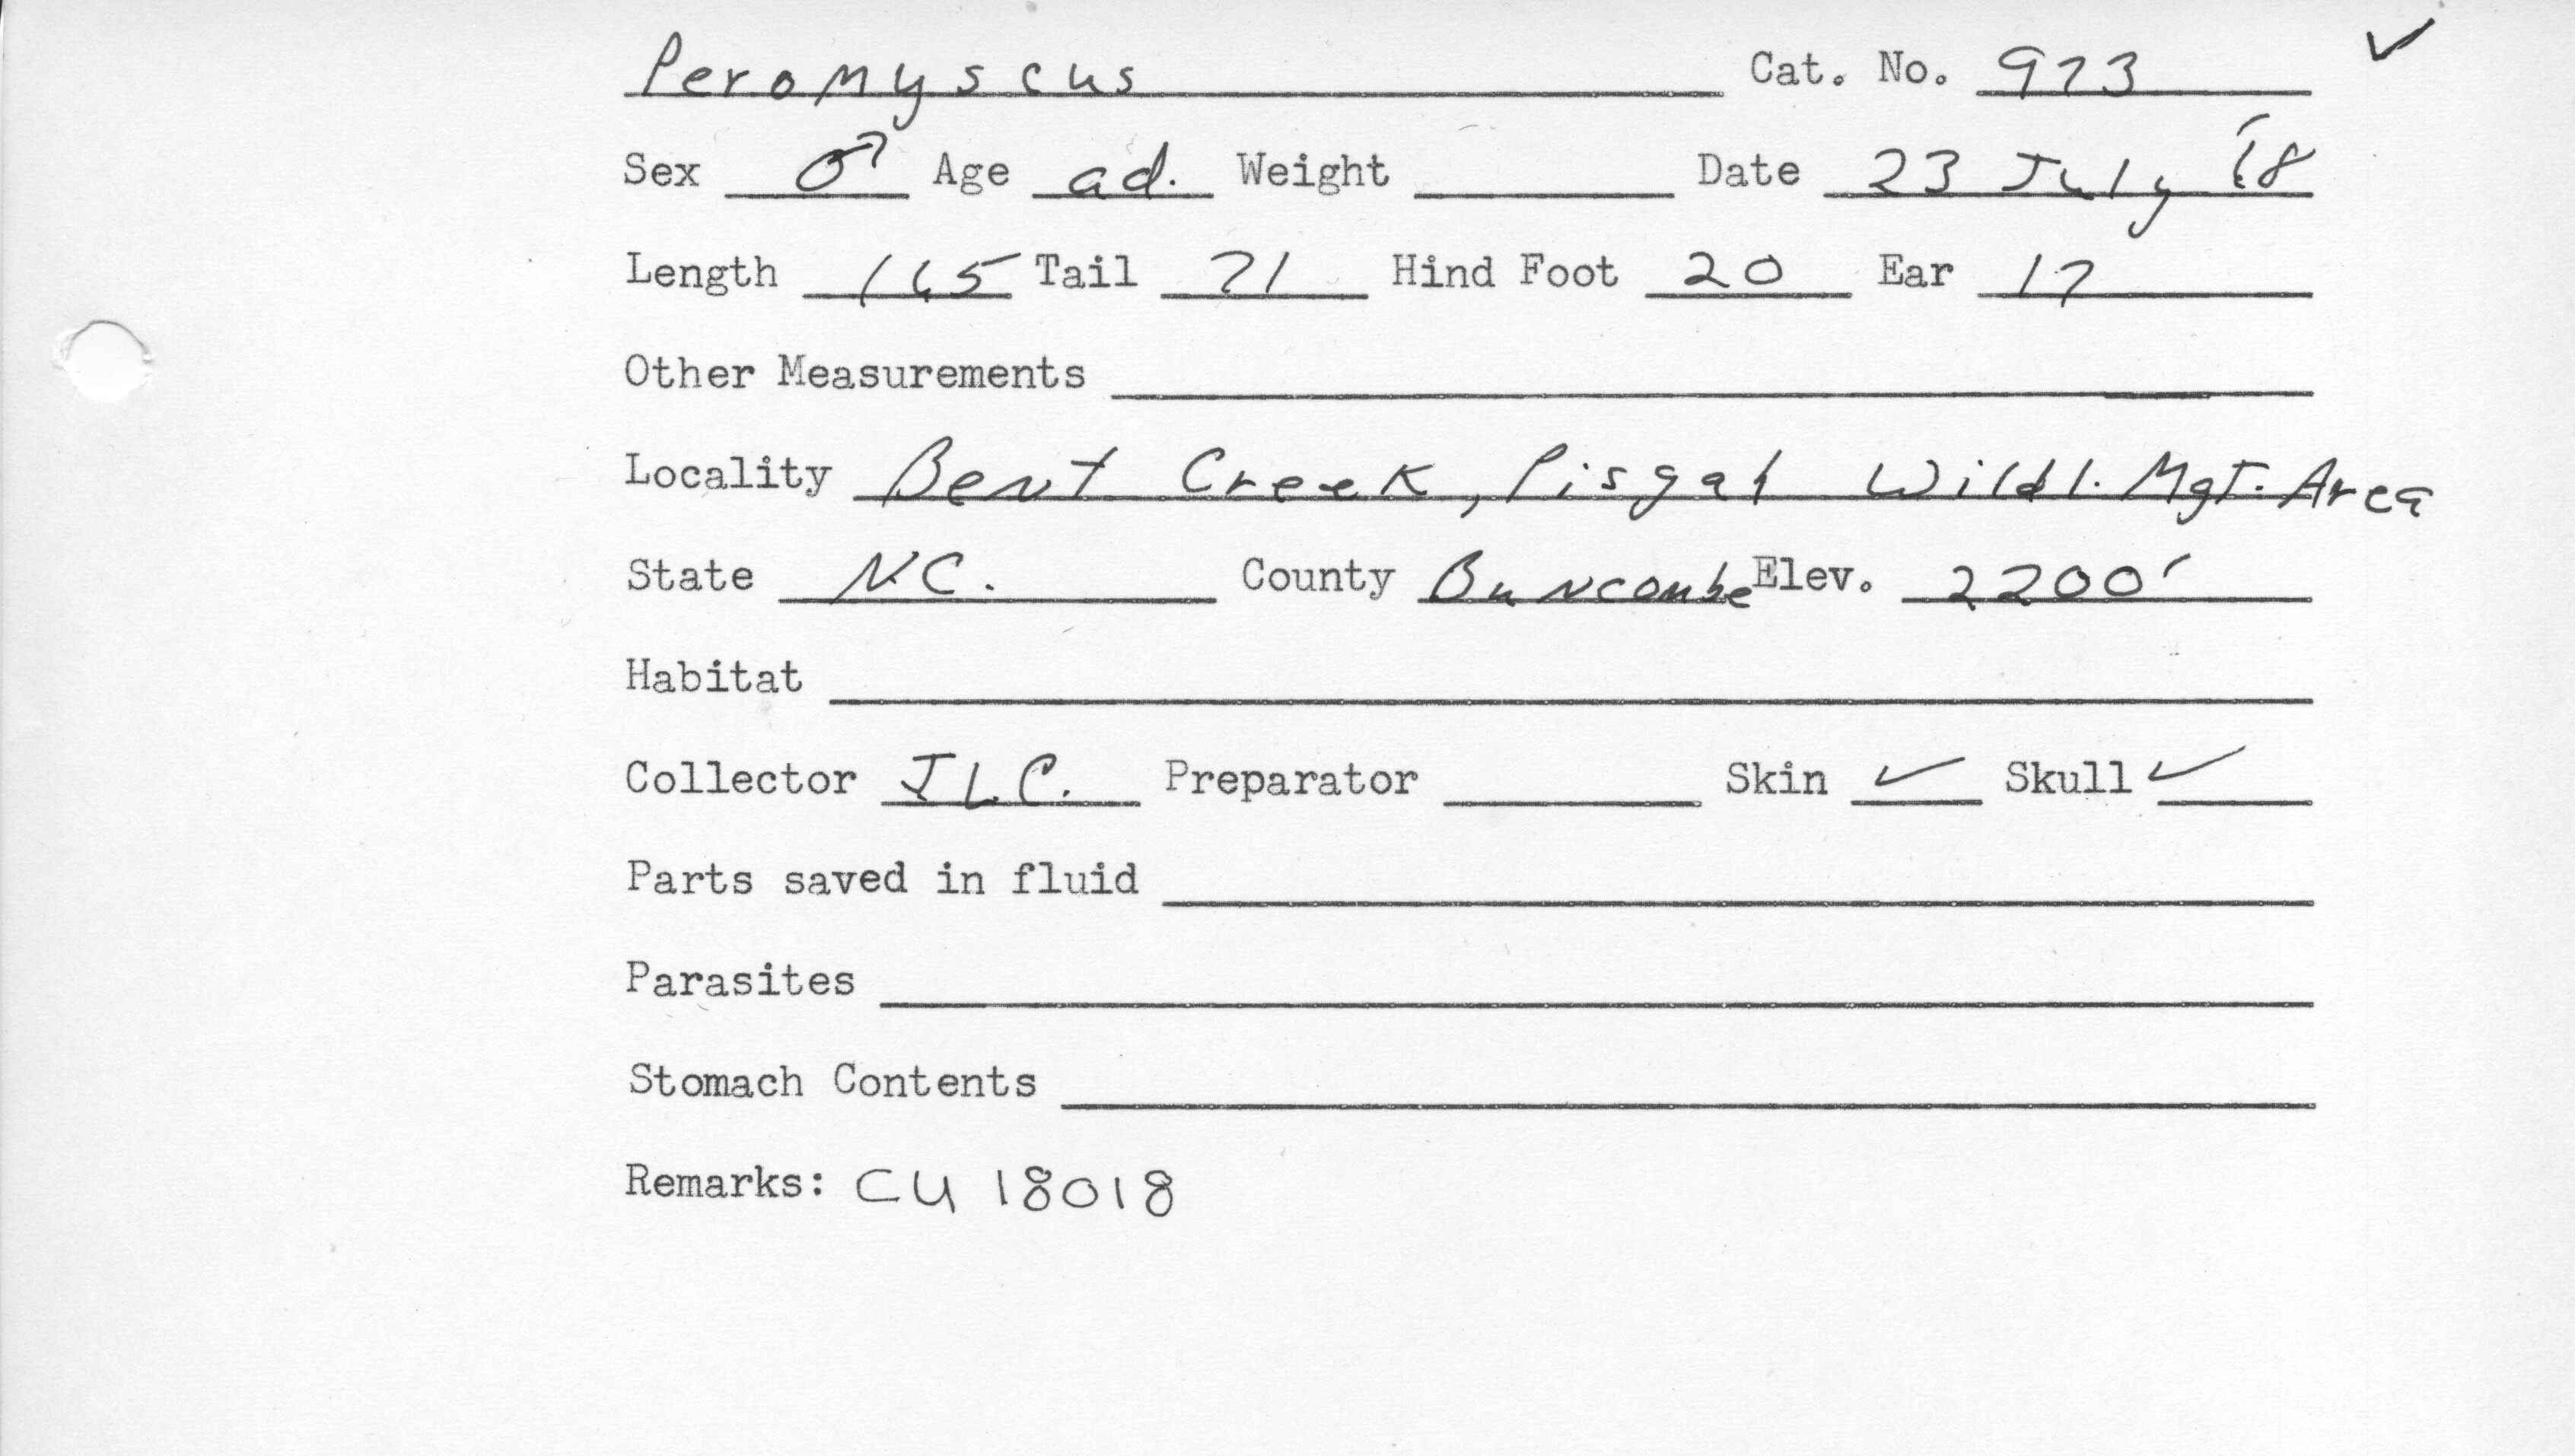 Peromyscus Cat. No. 973 ✓
Sex ♂ Age ad. Weight Date 23 July '68
Length 165 Tail 71 Hind Foot 20 Ear 17
Other Measurements
Locality Bent Creek, Pisgah Wildl. Mgt. Area
State N.C. County Buncombe Elev. 2200'
Habitat
Collector J.L.C. Preparator Skin ✓ Skull ✓
Parts saved in fluid
Parasites
Stomach Contents
Remarks: CU 18018